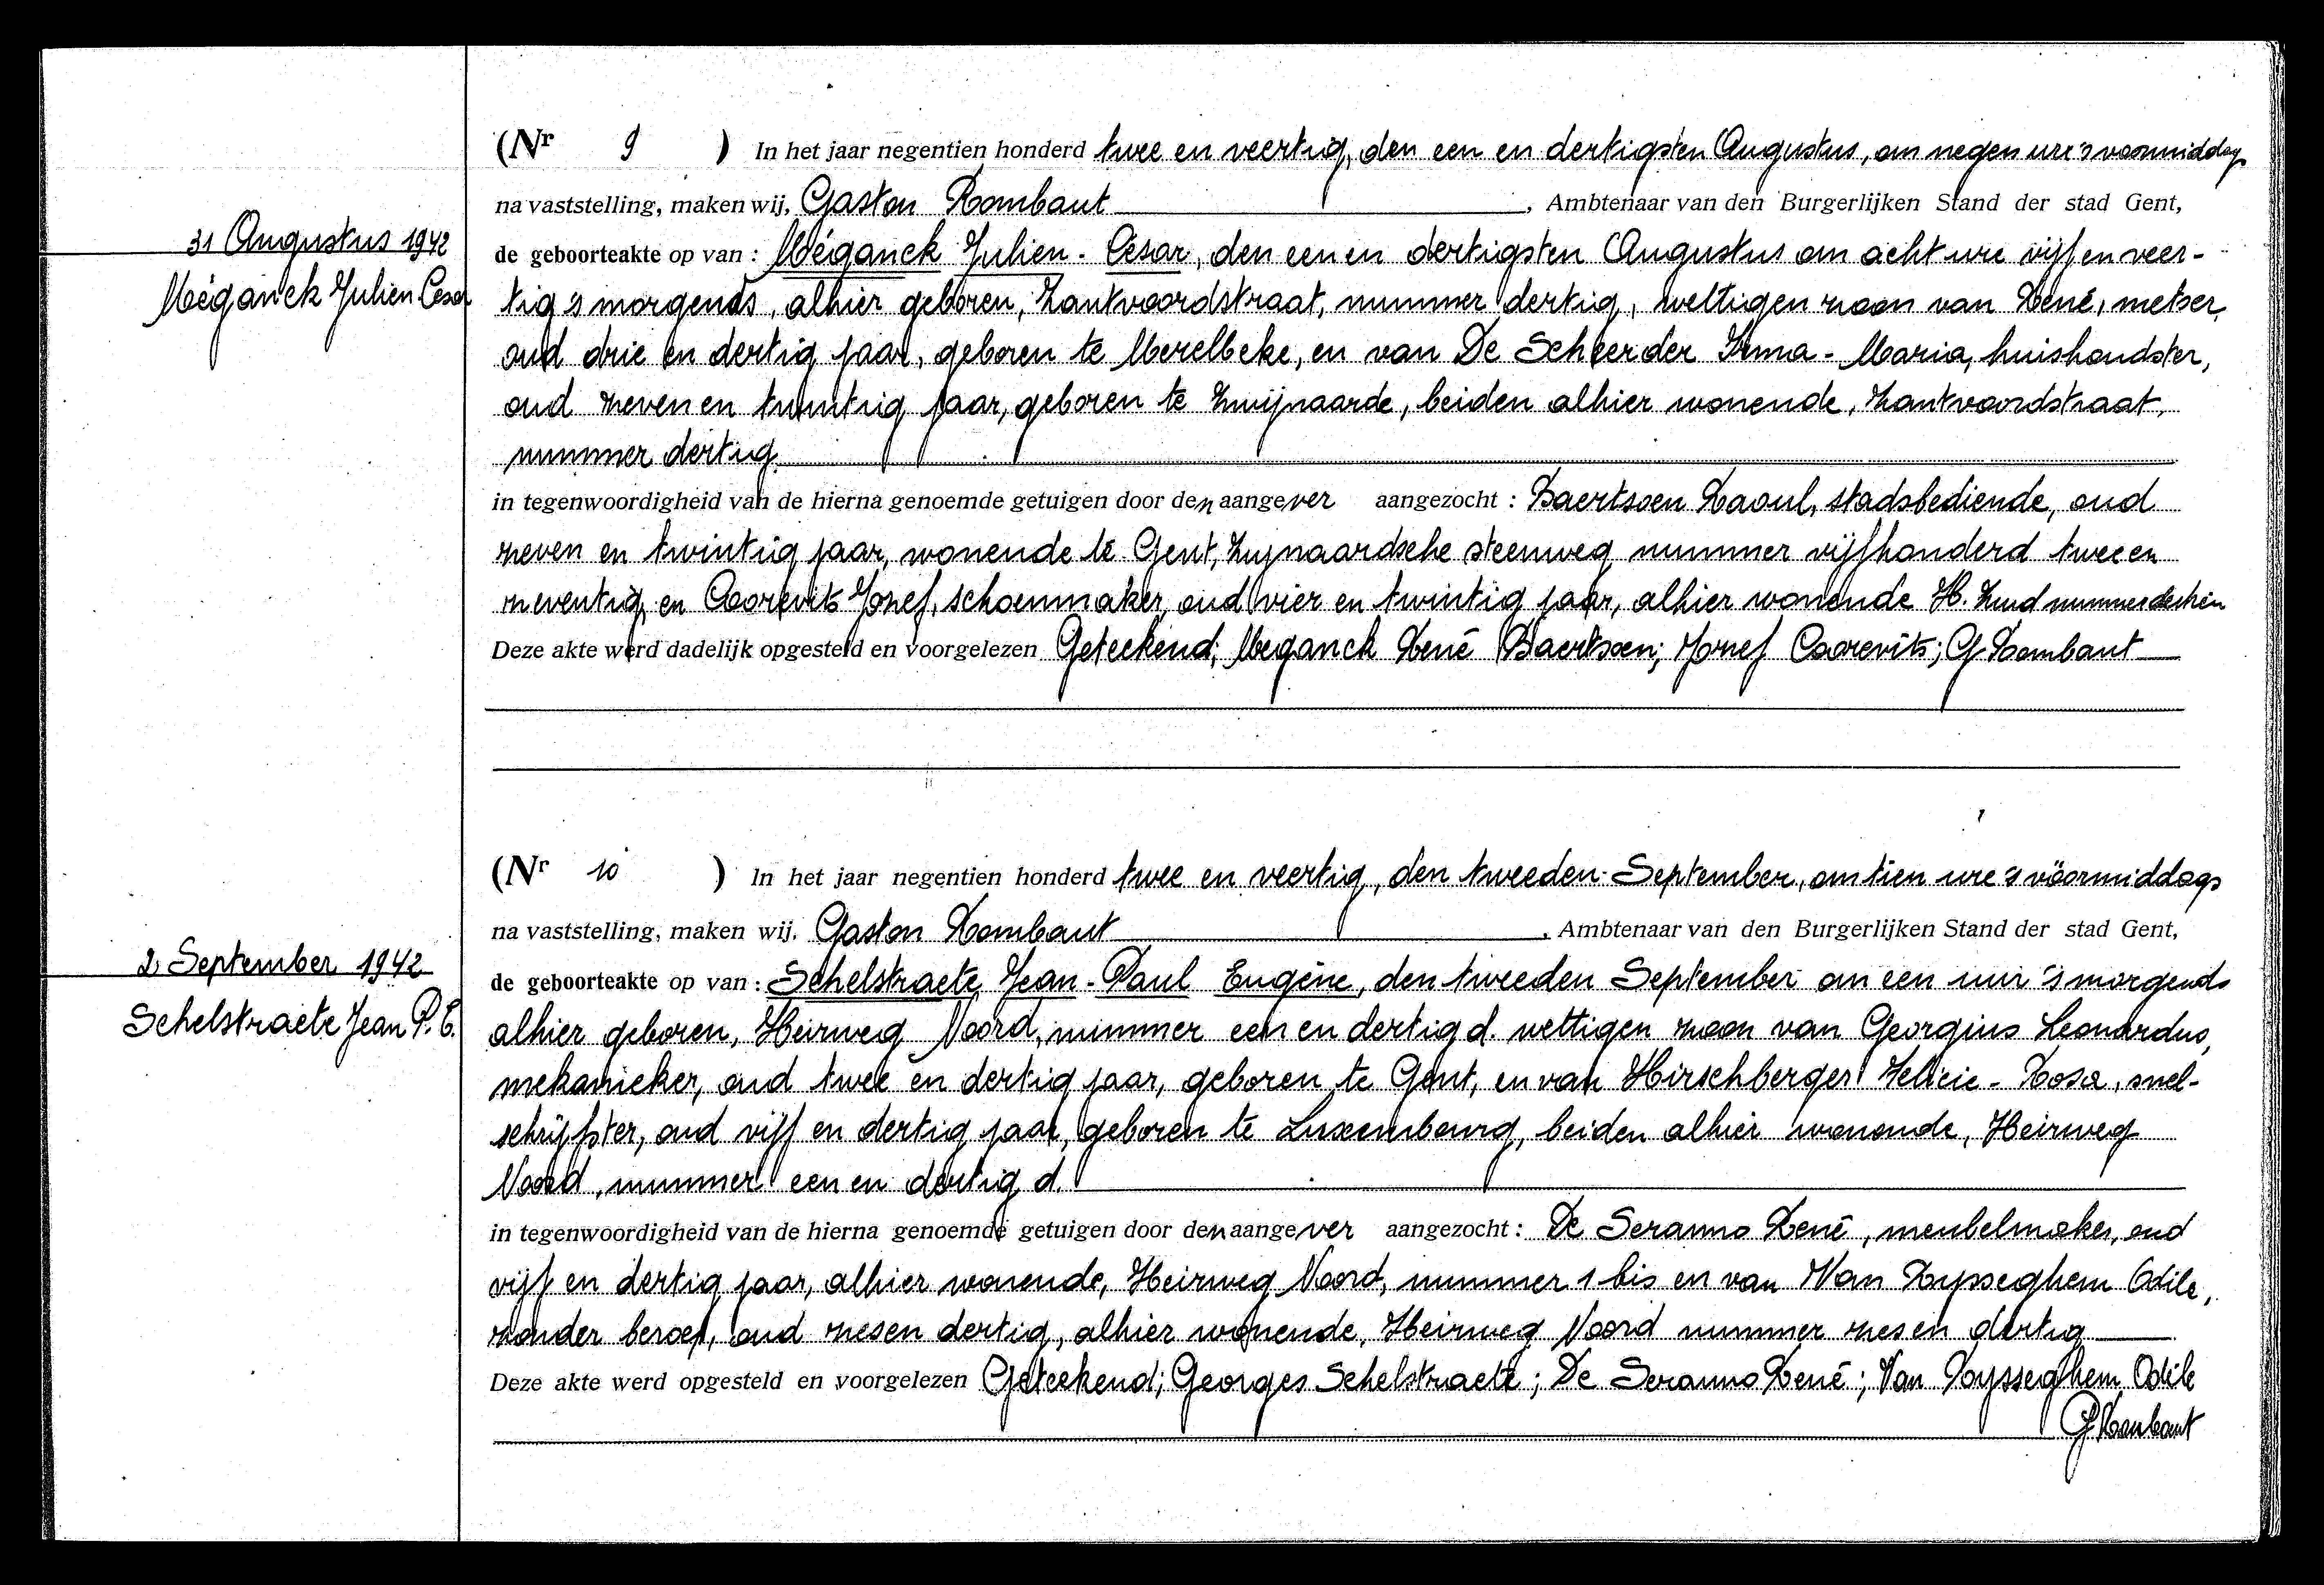 (Nr 9 ) In het jaar negentien honderd twee en veertig, den een en dertigsten Augustus, om negen ure 's voormiddags
na vaststelling, maken wij, Gaston Rombaut, Ambtenaar van den Burgerlijken Stand der stad Gent,
31 Augustus 1942
Méganck Julien Cesar
de geboorteakte op van : Méganck Julien - César, den een en dertigsten Augustus om acht ure vijf en veer-
tig 's morgends, alhier geboren, Zantvoordstraat, nummer dertig, wettigen zoon van René, metser,
oud drie en dertig jaar, geboren te Merelbeke, en van De Scheerder Irma - Maria, huishoudster,
oud zeven en twintig jaar, geboren te Zwijnaarde, beiden alhier wonende, Zantvoordstraat,
nummer dertig
in tegenwoordigheid van de hierna genoemde getuigen door den aangever aangezocht : Baertsoen Raoul, stadsbediende, oud
zeven en twintig jaar, wonende te Gent, Zwynaardsche steenweg nummer vijfhonderd twee en
zeventig en Coorevits Jozef, schoenmaker, oud vier en twintig jaar, alhier wonende H. Zuid nummer dertien
Deze akte werd dadelijk opgesteld en voorgelezen Geteekend; Meganck René Baertsoen; Jozef Coorevits; G Rombaut
(Nr 10 ) In het jaar negentien honderd twee en veertig, den tweeden September, om tien ure 's voormiddags
na vaststelling, maken wij, Gaston Rombaut, Ambtenaar van den Burgerlijken Stand der stad Gent,
2 September 1942
Schelstraete Jean P. E.
de geboorteakte op van : Schelstraete Jean - Paul Eugène, den tweeden September om een uur 's morgends
alhier geboren, Heirweg Noord, nummer een en dertig d. wettigen zoon van Georgius Leonardus,
mekanieker, oud twee en dertig jaar, geboren te Gent, en van Hirschberger Felicie - Rosa, snel-
schrijfster, oud vijf en dertig jaar, geboren te Luxembourg, beiden alhier wonende, Heirweg
Noord, nummer een en dertig d.
in tegenwoordigheid van de hierna genoemde getuigen door den aangever aangezocht : De Seranno René, meubelmaker, oud
vijf en dertig jaar, alhier wonende, Heirweg Noord, nummer 1 bis en van Van Rysseghem Odile,
zonder beroep, oud zesen dertig, alhier wonende, Heirweg Noord nummer zes en dertig
Deze akte werd opgesteld en voorgelezen Geteekend; Georges Schelstraete; De Seranno René; Van Rysseghem Odile
G. Rombaut